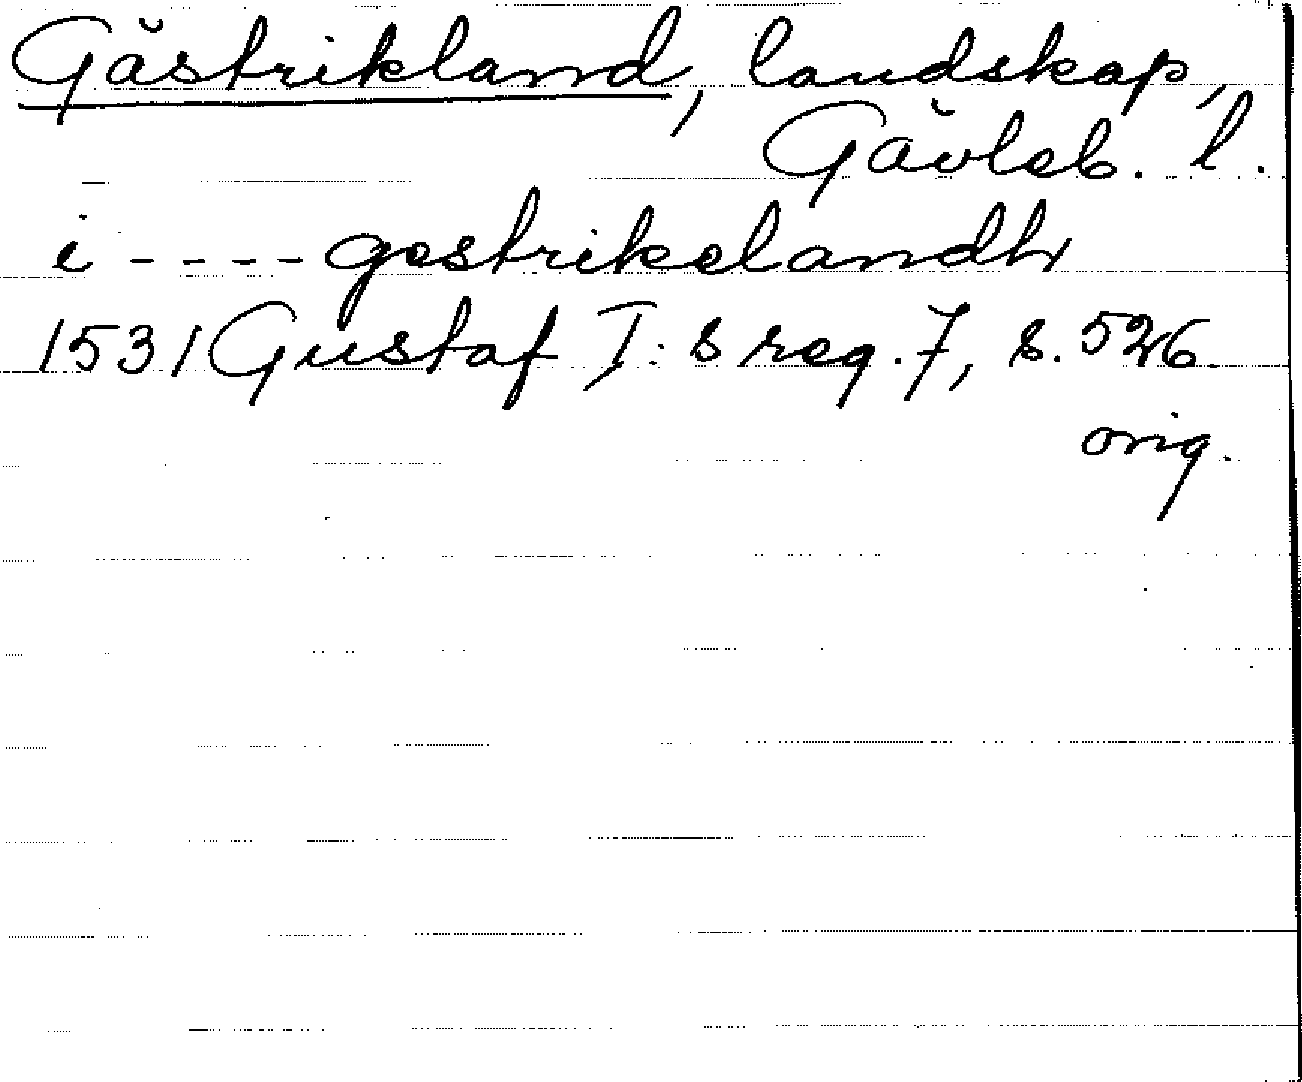 Gästrikland, landskap,
Gävleb. l.
i - - - - gestrikelandh
1531 Gustaf I:s reg. 7, s. 526.
orig.